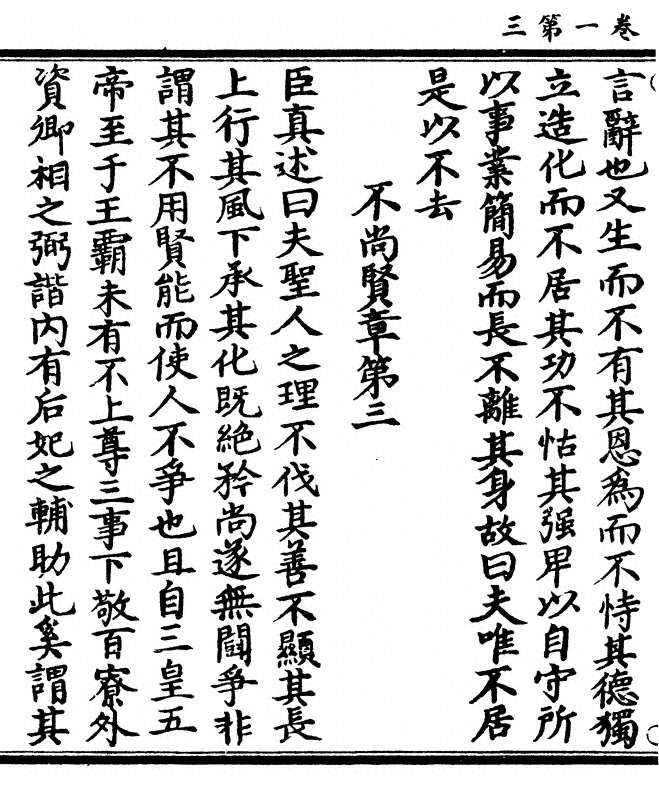 卷一第三
言辭也又生而不有其恩為而不恃其德獨
立造化而不居其功不怙其强卑以自守所
以事業簡易而長不離其身故曰夫唯不居
是以不去
不尚賢章第三
臣真述曰夫聖人之理不伐其善不顯其長
上行其風下承其化既絶矜尚遂無鬪爭非
謂其不用賢能而使人不爭也且自三皇五
帝至于王霸未有不上尊三事下敬百寮外
資卿相之弼諧内有后妃之輔助此奚謂其